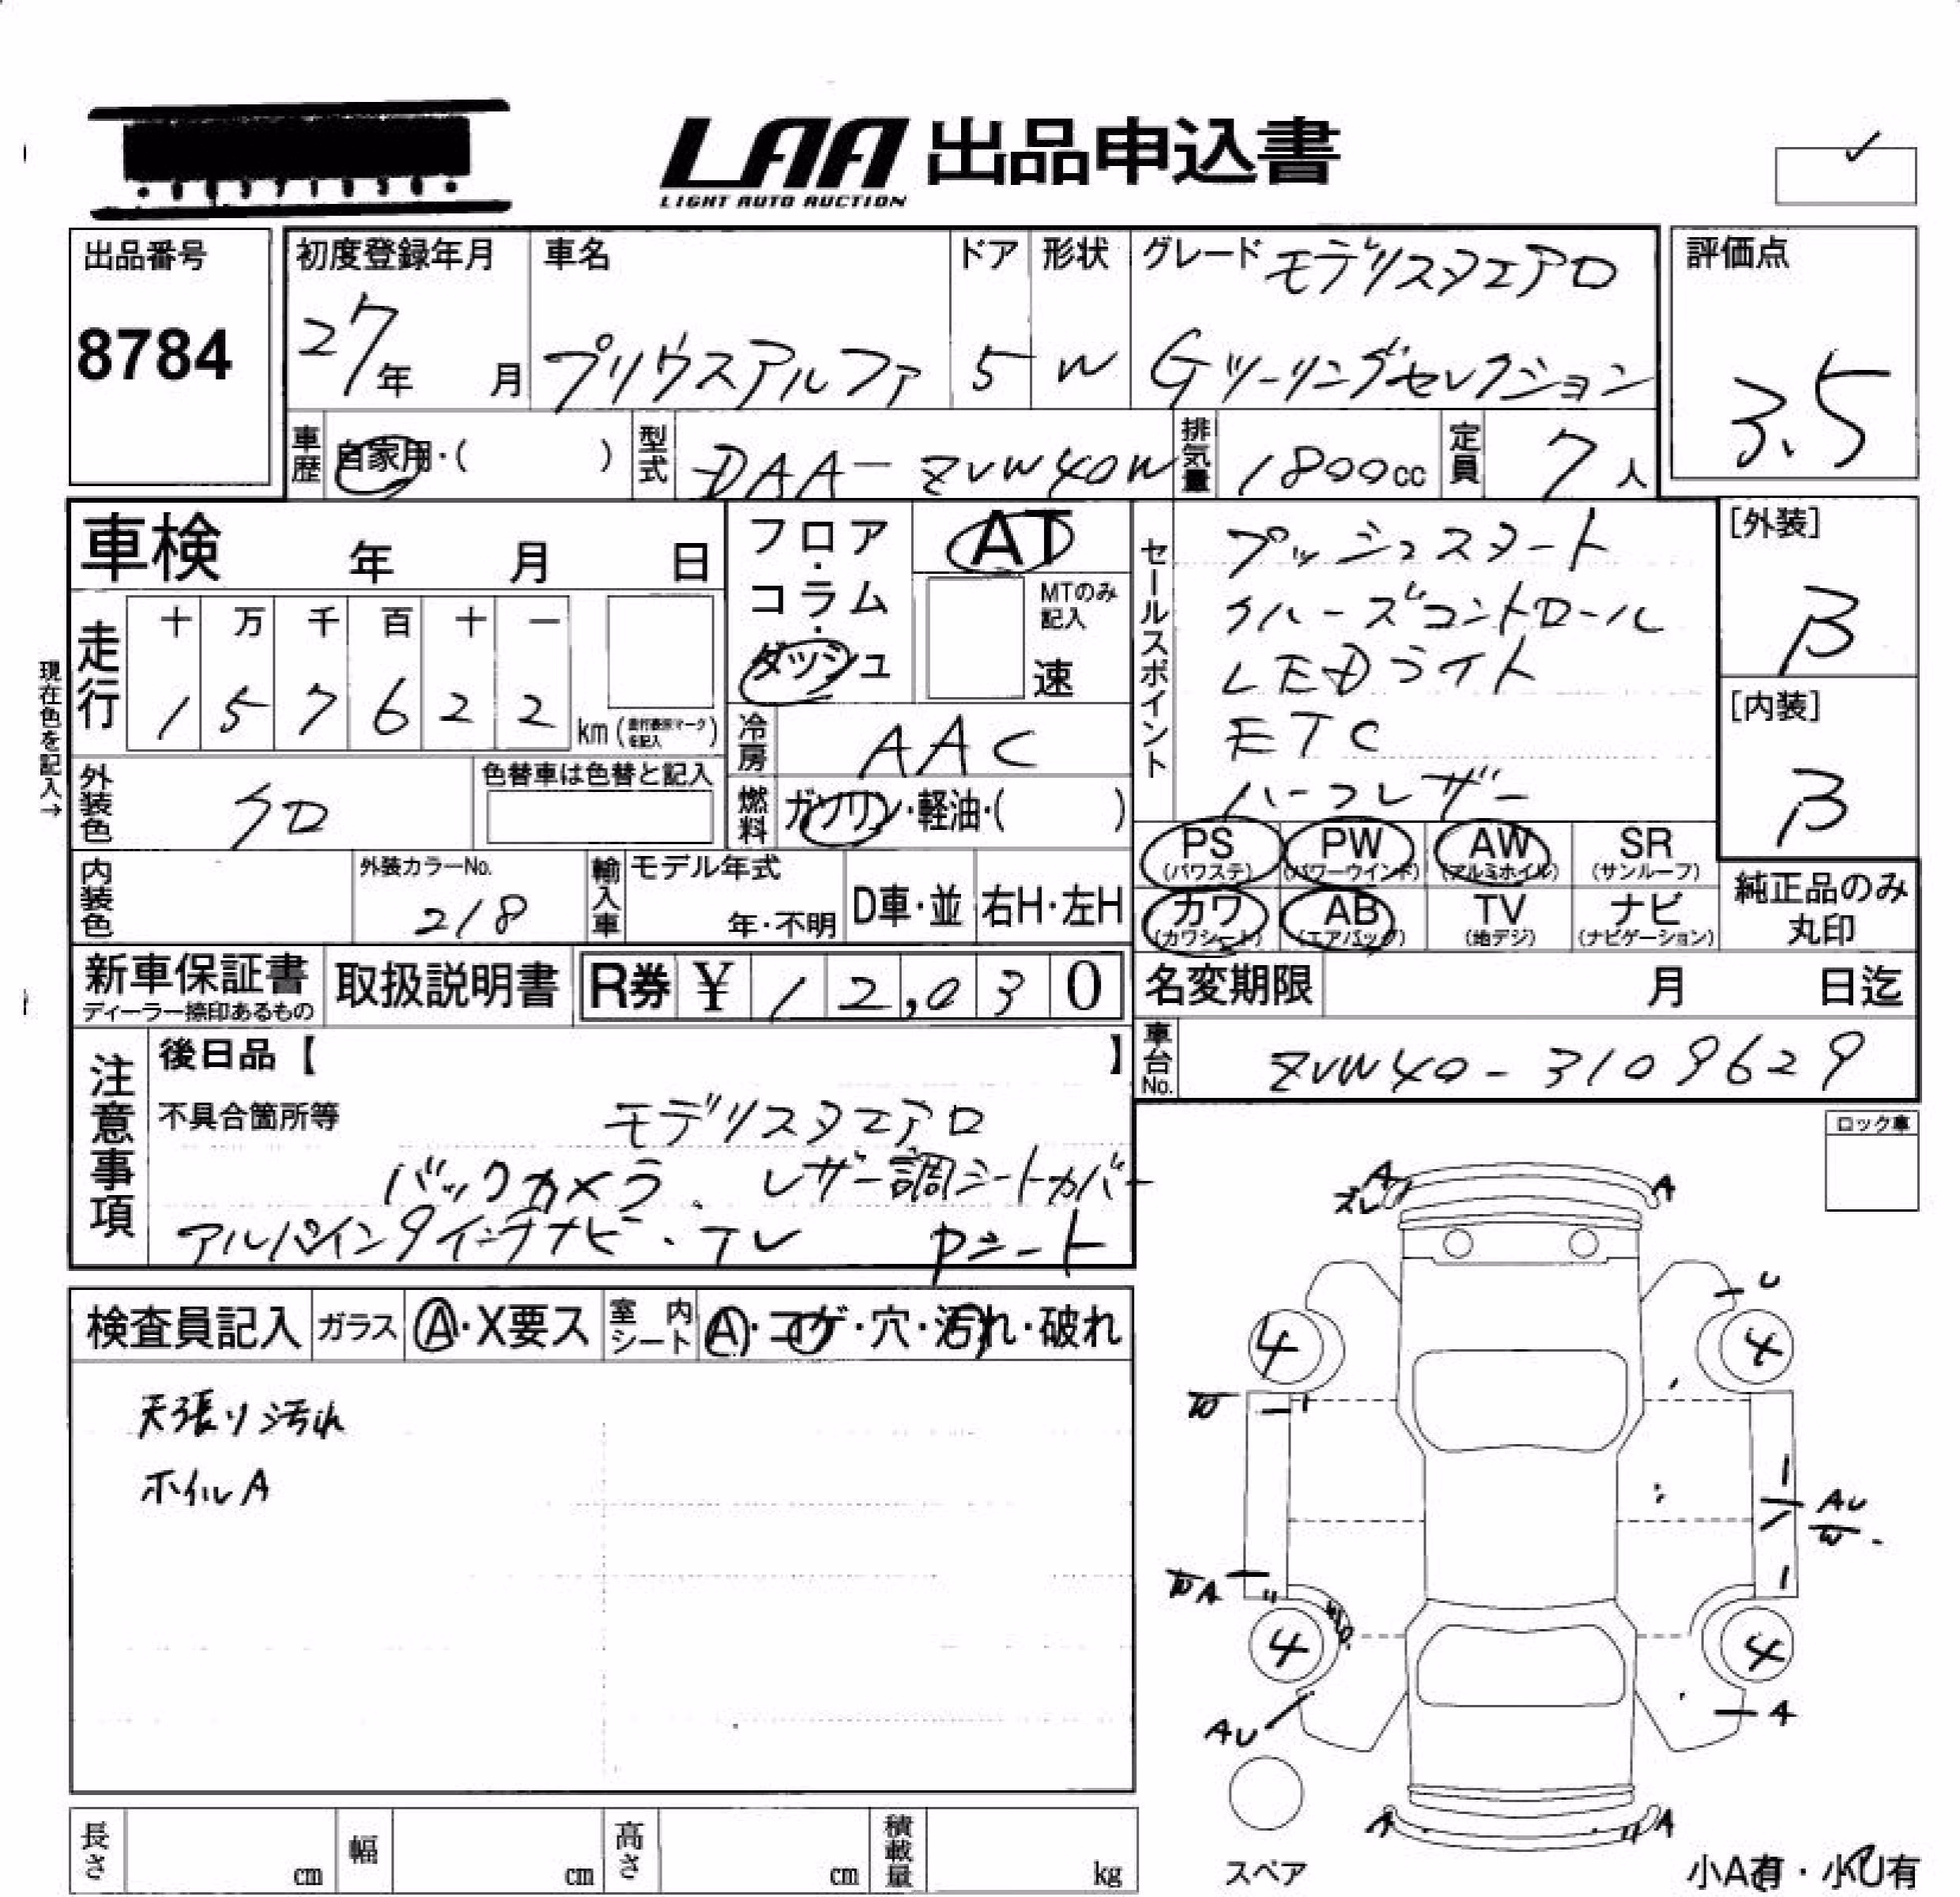 LAA 出品申込書
LIGHT AUTO AUCTION
出品番号
8784
初度登録年月
27年 月
車名
プリウスアルファ
ドア
5
形状
W
グレード モデリスタエアロ
Gツーリングセレクション
評価点
3.5
車歴 自家用・( )
型式 DAA-ZVW40W
排気量 1800cc
定員 7人
車検 年 月 日
フロア・コラム・ダッシュ
AT
MTのみ記入
速
セールスポイント
プッシュスタート
クルーズコントロール
LEDライト
ETC
ハーフレザー
[外装]
B
[内装]
B
現在色を記入→
走行
十 万 千 百 十 一
1 5 7 6 2 2 km (走行表示マークを記入)
冷房 AAC
燃料 ガソリン・軽油・( )
外装色 クロ
色替車は色替と記入
PS (パワステ) PW (パワーウインド) AW (アルミホイル) SR (サンルーフ)
カワ (カワシート) AB (エアバッグ) TV (地デジ) ナビ (ナビゲーション)
純正品のみ丸印
内装色
外装カラーNo.
218
輸入車
モデル年式
年・不明
D車・並
右H・左H
新車保証書
ディーラー捺印あるもの
取扱説明書
R券 ¥ 12,030
名変期限 月 日迄
車台No. ZVW40-3109629
注意事項
後日品【 】
不具合箇所等
モデリスタエアロ
バックカメラ、レザー調シートカバー
アルパイン9インチナビ・TV Pシート
ロック車
検査員記入 ガラス A・X要ス 室内シート A・コゲ・穴・汚れ・破れ
天張り汚れ
ホイルA
A
ズレ
A
U
4 4
W
AU
W
WA
4 4
AU
A
A A
スペア
小A有・小U有
長さ cm 幅 cm 高さ cm 積載量 kg